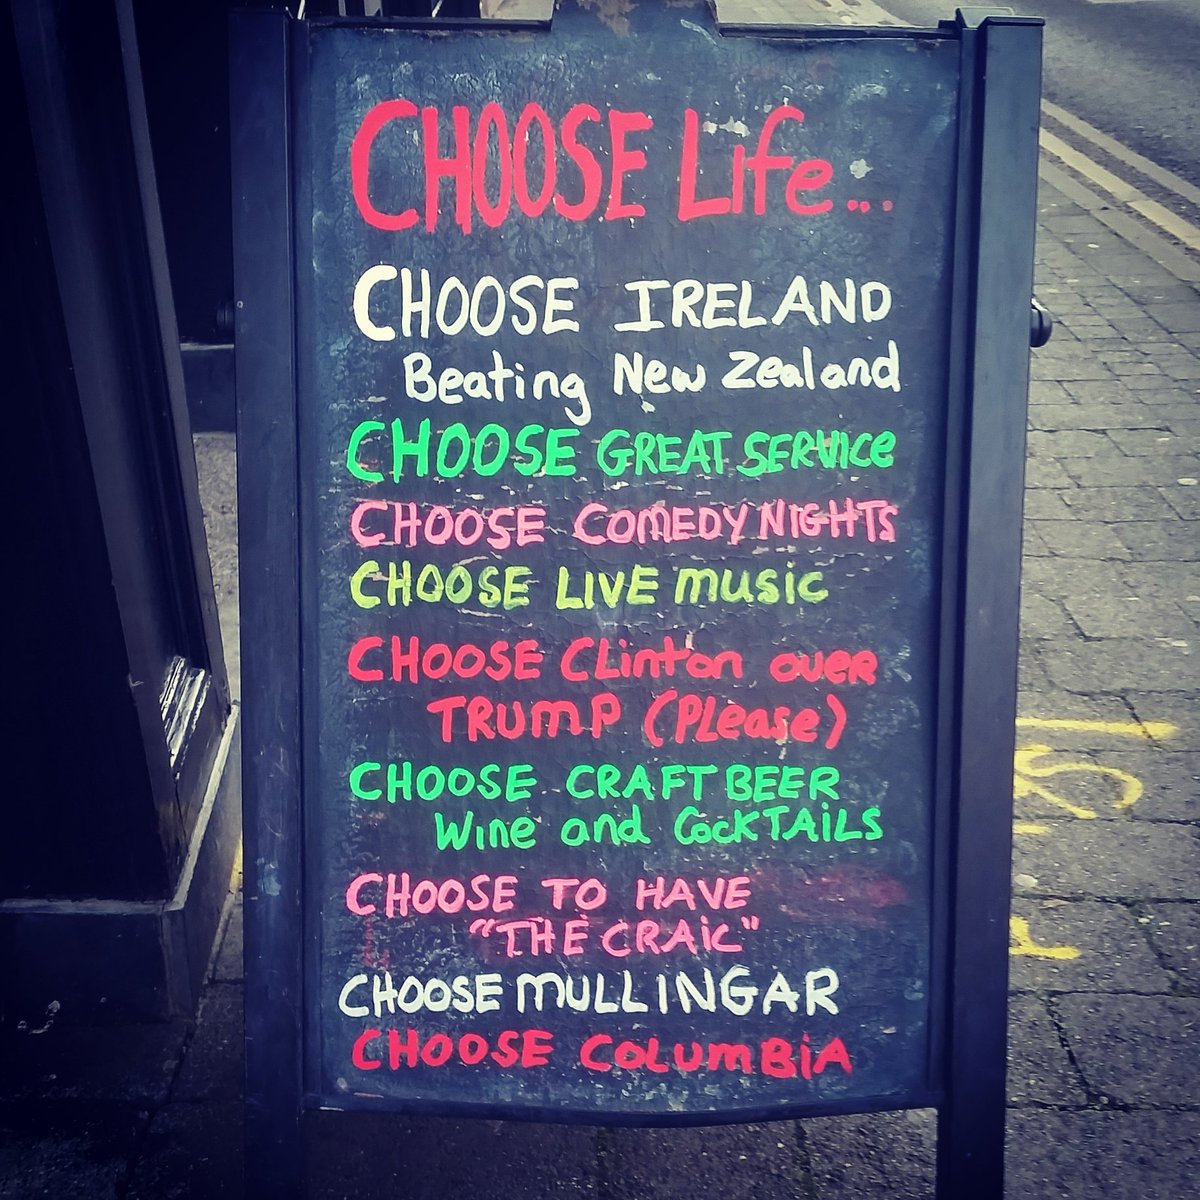 CHOOSE Life...
CHOOSE IRELAND
Beating New Zealand
CHOOSE GREAT SERVICE
CHOOSE COMEDY NIGHTS
CHOOSE LIVE MUSIC
CHOOSE CLinton over
TRUMP (PLease)
CHOOSE CRAFT BEER
Wine and COCKTAiLS
CHOOSE TO HAVE
"THE CRAiC"
CHOOSE MULLINGAR
CHOOSE COLUMBiA